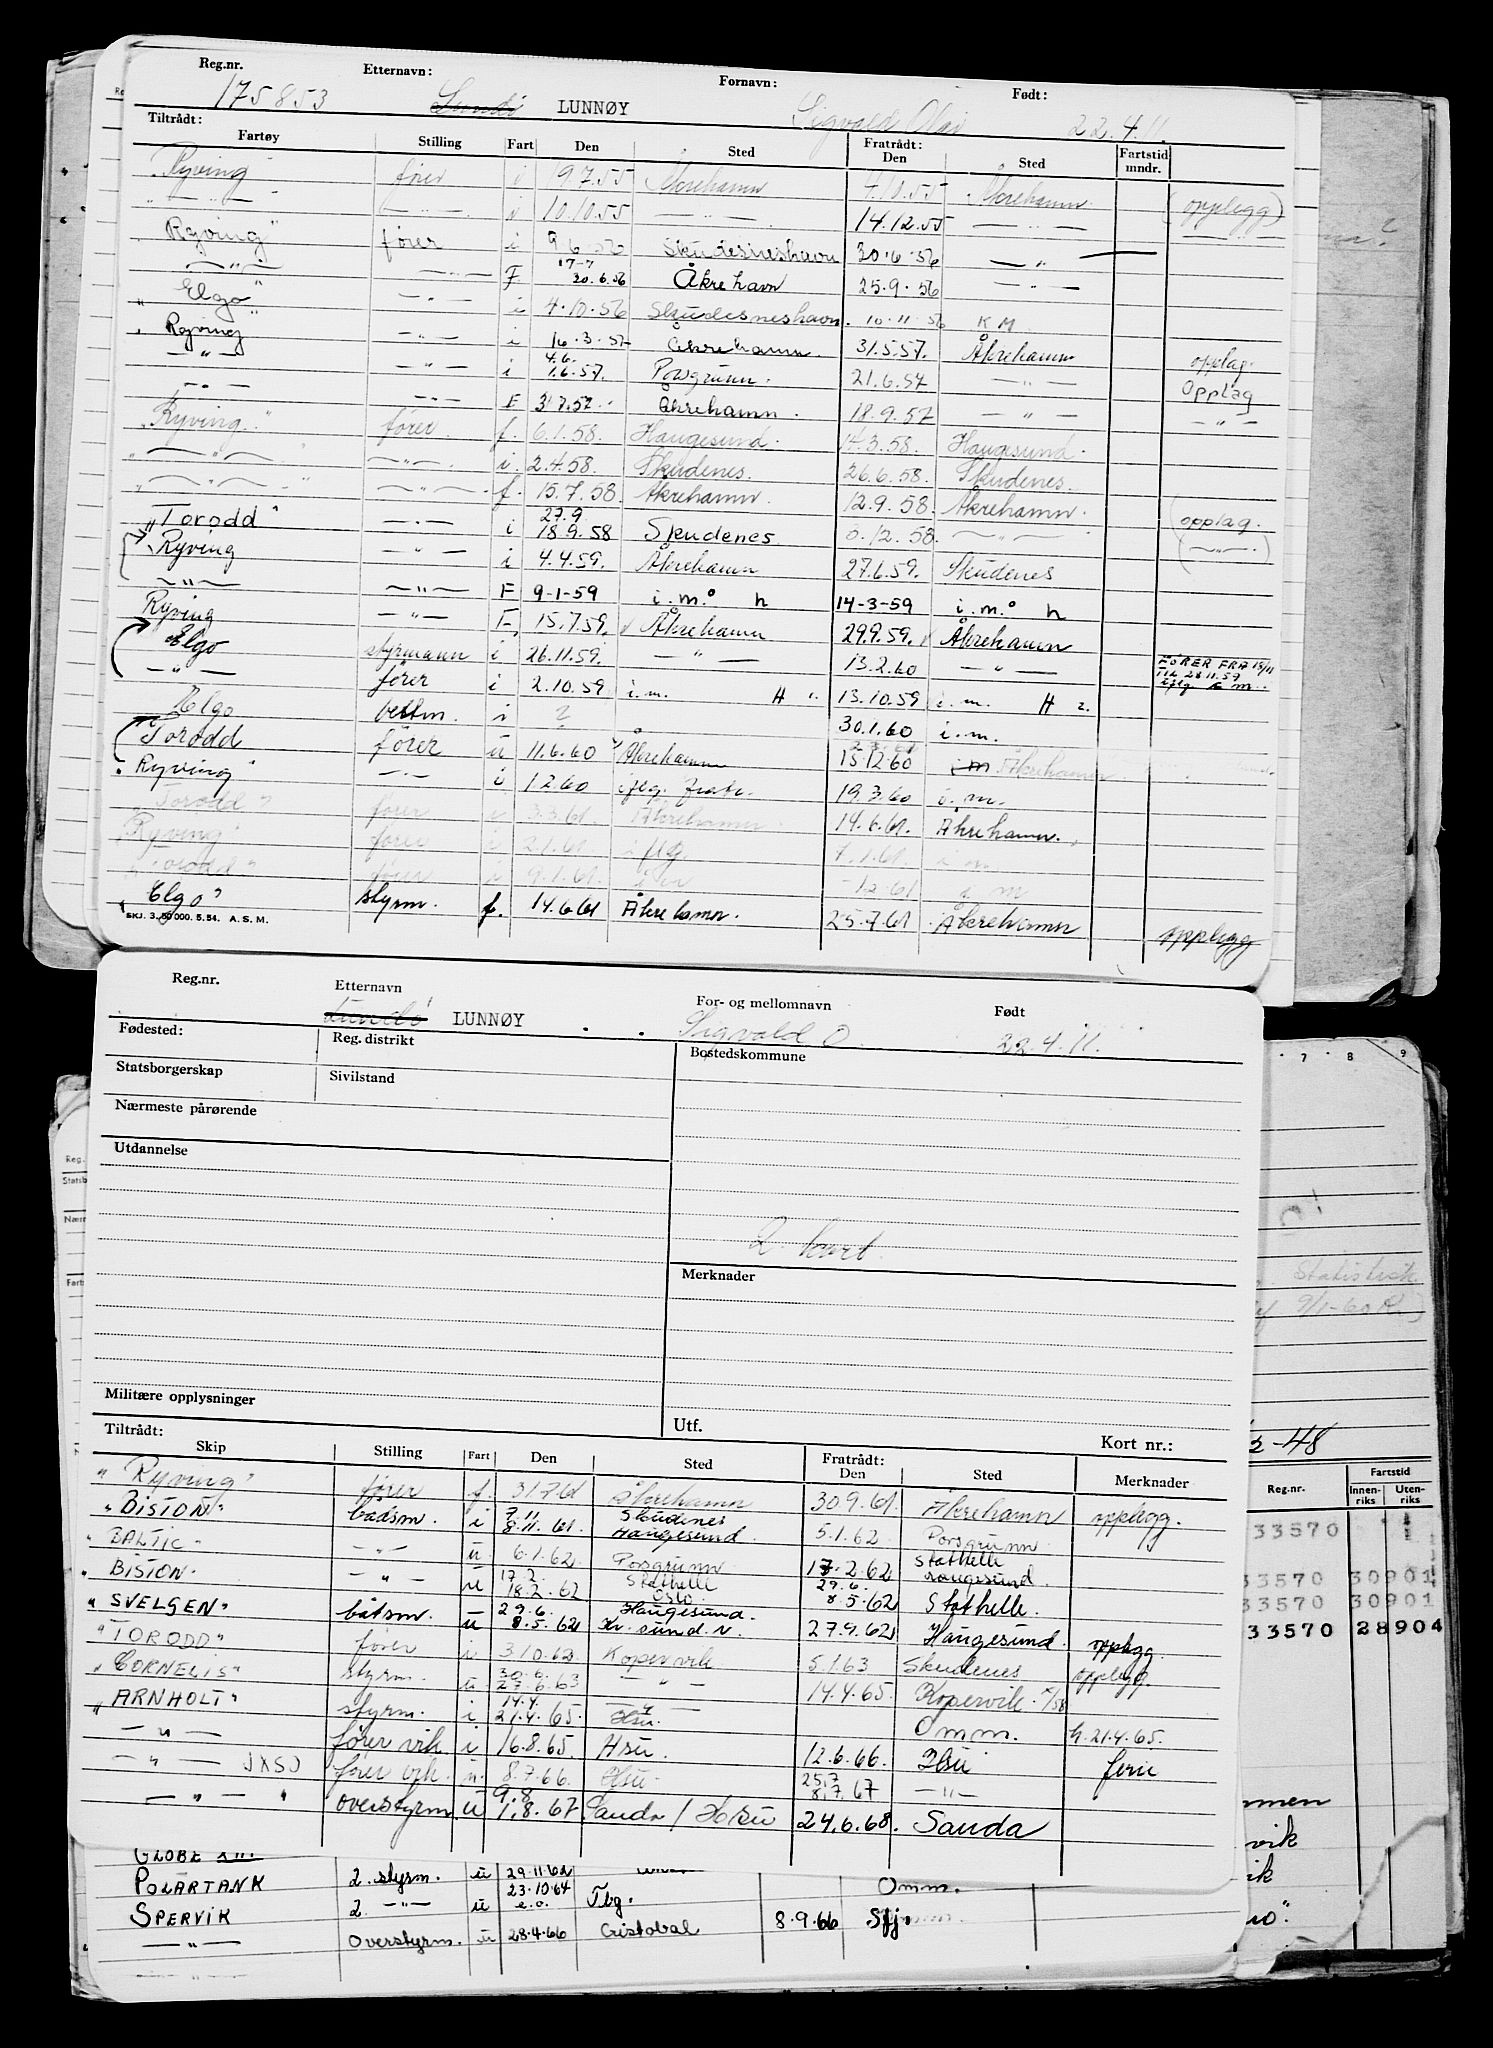 Reg.nr. Etternavn: Fornavn: Født:
175853 LUNNØY Sigvald Olai 22.4.11.
Tiltrådt: Fratrådt:
Fartøy Stilling Fart Den Sted Den Sted Fartstid mndr.
"Ryving" fører i 9 7.55 Åkrehamn 4/10.55 Åkrehamn (opplegg)
— " — — " — i 10.10.55 — " — 14.12.55 — " — — " —
"Ryving" fører i 9.6.56 Skudesneshavn 30.6.56 — " —
— " — — " — F 17-7 20.6.56 Åkrehavn 25.9.56 — " —
"Elgo" — " — i 4.10.56 Skudesneshavn. 10.11.56 K M.
"Ryving" — " — i 16.3.57 Åkrehamn. 31.5.57. Åkrehamn opplag.
— " — — " — i 4.6. 1.6.57. Porsgrunn. 21.6.57 — " — Opplag
— " — — " — F 3.7.57. Åkrehamn. 18.9.57 — " — — " —
"Ryving." fører. f. 6.1.58. Haugesund. 14.3.58. Haugesund.
— " — — " — i. 2.4.58. Skudenes. 26.6.58. Skudenes.
— " — — " — f. 15.7.58. Åkrehamn. 12.9.58. Åkrehamn. (opplag.
"Torodd" — " — i 27.9 18.9.58 Skudenes .12.58. — " — (— " —)
Ryving — " — i 4.4.59. Åkrehamn 27.6.59. Skudenes
— " — — " — F 9-1-59 i.m.° h 14-3-59 i.m.° h
Ryving — " — F. 15.7.59. Åkrehamn 29.9.59. Åkrehamn
Elgo styrmann i 26.11.59. — " — 13.2.60 — " — FØRER FRA 15/11 TIL 28 11.59 iflg. m.
— " — fører i 2.10.59 i.m. H 13.10.59 i.m. H
Elgo i ? 30.1.60 i.m.
Torodd fører u 11.6.60 Åkrehamn 15.12.60 i m Åkrehamn
"Ryving" — " — i 1.2.60 iflg. fratr. 19.3.60 i.m.
"Torodd" fører i 3.3.61. Åkrehamn. 14.6.61. Åkrehamn.
"Ryving" fører i 2.1.61. iflg 7.1.61 i m
"Torodd" fører i 9.1.61. 12.61 m
"Elgo" styrm. f. 14.6.61 Åkrehamn. 25.7.61 Åkrehamn opplegg
SKJ. 3. 50 000. 5.54. A.S.M.
Reg.nr. Etternavn For- og mellomnavn Født
LUNNØY Sigvald O. 22.4.11.
Fødested: Reg. distrikt Bostedskommune
Statsborgerskap Sivilstand
Nærmeste pårørende
Utdannelse
2. kort.
Merknader
Militære opplysninger Utf. Kort nr.:
Tiltrådt: Fratrådt:
Skip Stilling Fart Den Sted Den Sted Merknader
"Ryving" fører f. 3/7 61 Åkrehamn 30.9.61. Åkrehamn opplegg.
"BISTON" båtsm. i 7.11 8.11.61. Skudenes Haugesund. 5.1.62. Porsgrunn
"BALTIC" — " — u 6.1.62. Porsgrunn 17.2.62 Stathelle
"BISTON" — " — u 17.2. 18.2.62 Stathelle Oslo. 29.6. 8.5.62 Haugesund. Stathelle.
"SVELGEN" båtsm. u 29.6. 8.5.62 Haugesund. Kr.sund.N. 27.9.62 Haugesund. opplegg.
"TORODD" fører i 3/10.62. Kopervik 5.1.63 Skudenes opplegg.
"CORNELIS" styrm. u 30.6. 27.6.63 — " — 14.4.65. Kopervik.
"ARNHOLT" styrm. i 14.4. 21.4.65. Hsu. Omm. h.21.4.65.
— " — fører vik. i 16.8.65. Hsu. 12.6.66. Hsu ferie
— " — JXSO fører vik. u. 8.7.66. Hsu. 25.7 8.7.67 — " —
— " — overstyrm. u 9.8 1.8.67. Sauda / Hsu 24.6.68. Sauda
GLOBE
POLARTANK 2. styrm. u 29.11.62 Omm.
SPERVIK 2. — " — u 23.10.64 e.o. Tbg. Sfj.
— " — Overstyrm. u 28.4.66 Cristobal 8.9.66
7 8 9
Statistikk
9/1-60
-48
Reg.nr. Fartstid Innen-riks Uten-riks
33570
33570 30901
33570 30901
33570 28904